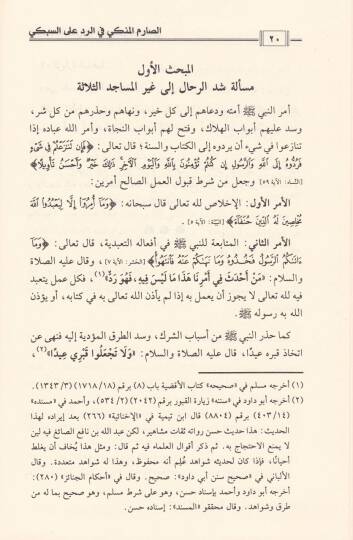 الصارم المنكي في الرد على السبكي
٢٠
المبحث الأول
مسألة شد الرحال إلى غير المساجد الثلاثة
أمر النبي ﷺ أمته ودعاهم إلى كل خير، ونهاهم وحذرهم من كل شر،
وسد عليهم أبواب الهلاك، وفتح لهم أبواب النجاة، وأمر الله عباده إذا
تنازعوا في شيء أن يردوه إلى الكتاب والسنة؛ قال تعالى: ﴿فَإِن تَنَٰزَعْتُمْ فِى شَىْءٍ
فَرُدُّوهُ إِلَى ٱللَّهِ وَٱلرَّسُولِ إِن كُنتُمْ تُؤْمِنُونَ بِٱللَّهِ وَٱلْيَوْمِ ٱلْءَاخِرِ ذَٰلِكَ خَيْرٌ وَأَحْسَنُ تَأْوِيلًا﴾
[النساء: الآية ٥٩] وجعل من شرط قبول العمل الصالح أمرين:
الأمر الأول: الإخلاص لله تعالى قال سبحانه: ﴿وَمَآ أُمِرُوٓا۟ إِلَّا لِيَعْبُدُوا۟ ٱللَّهَ
مُخْلِصِينَ لَهُ ٱلدِّينَ حُنَفَآءَ﴾ [البينة: الآية ٥].
الأمر الثاني: المتابعة للنبي ﷺ في أفعاله التعبدية، قال تعالى: ﴿وَمَآ
ءَاتَىٰكُمُ ٱلرَّسُولُ فَخُذُوهُ وَمَا نَهَىٰكُمْ عَنْهُ فَٱنتَهُوا۟﴾ [الحشر: الآية ٧]، وقال عليه الصلاة
والسلام: «مَنْ أَحْدَثَ فِي أَمْرِنَا هَذَا مَا لَيْسَ فِيهِ، فَهُوَ رَدٌّ»(١)، فكل عمل يتعبد
فيه لله تعالى لا يجوز أن يعمل به إذا لم يأذن الله تعالى به في كتابه، أو يؤذن
الله به رسوله ﷺ.
كما حذر النبي ﷺ من أسباب الشرك، وسد الطرق المؤدية إليه فنهى عن
اتخاذ قبره عيدًا، قال عليه الصلاة والسلام: «وَلَا تَجْعَلُوا قَبْرِي عِيدًا»(٢)،
(١) أخرجه مسلم في «صحيحه» كتاب الأقضية باب (٨) برقم (١٧١٨/١٨) (١٣٤٣/٣).
(٢) أخرجه أبو داود في «سننه» زيارة القبور برقم (٢٠٤٢) (٥٣٤/٢)، وأحمد في «مسنده»
(٤٠٣/١٤) برقم (٨٨٠٤) قال ابن تيمية في «الإخنائية» (٢٦٦) بعد إيراده لهذا
الحديث: هذا حديث حسن رواته ثقات مشاهير، لكن عبد الله بن نافع الصائغ فيه لين
لا يمنع الاحتجاج به. ثم ذكر أقوال العلماء فيه ثم قال: ومثل هذا يُخاف أن يغلط
أحيانًا، فإذا كان لحديثه شواهد عُلِم أنه محفوظ، وهذا له شواهد متعددة. وقال
الألباني في «صحيح سنن أبي داود»: صحيح. وقال في «أحكام الجنائز» (٢٨٠):
أخرجه أبو داود وأحمد بإسناد حسن، وهو على شرط مسلم، وهو صحيح بما له من
طرق وشواهد. وقال محققو «المسند»: إسناده حسن.